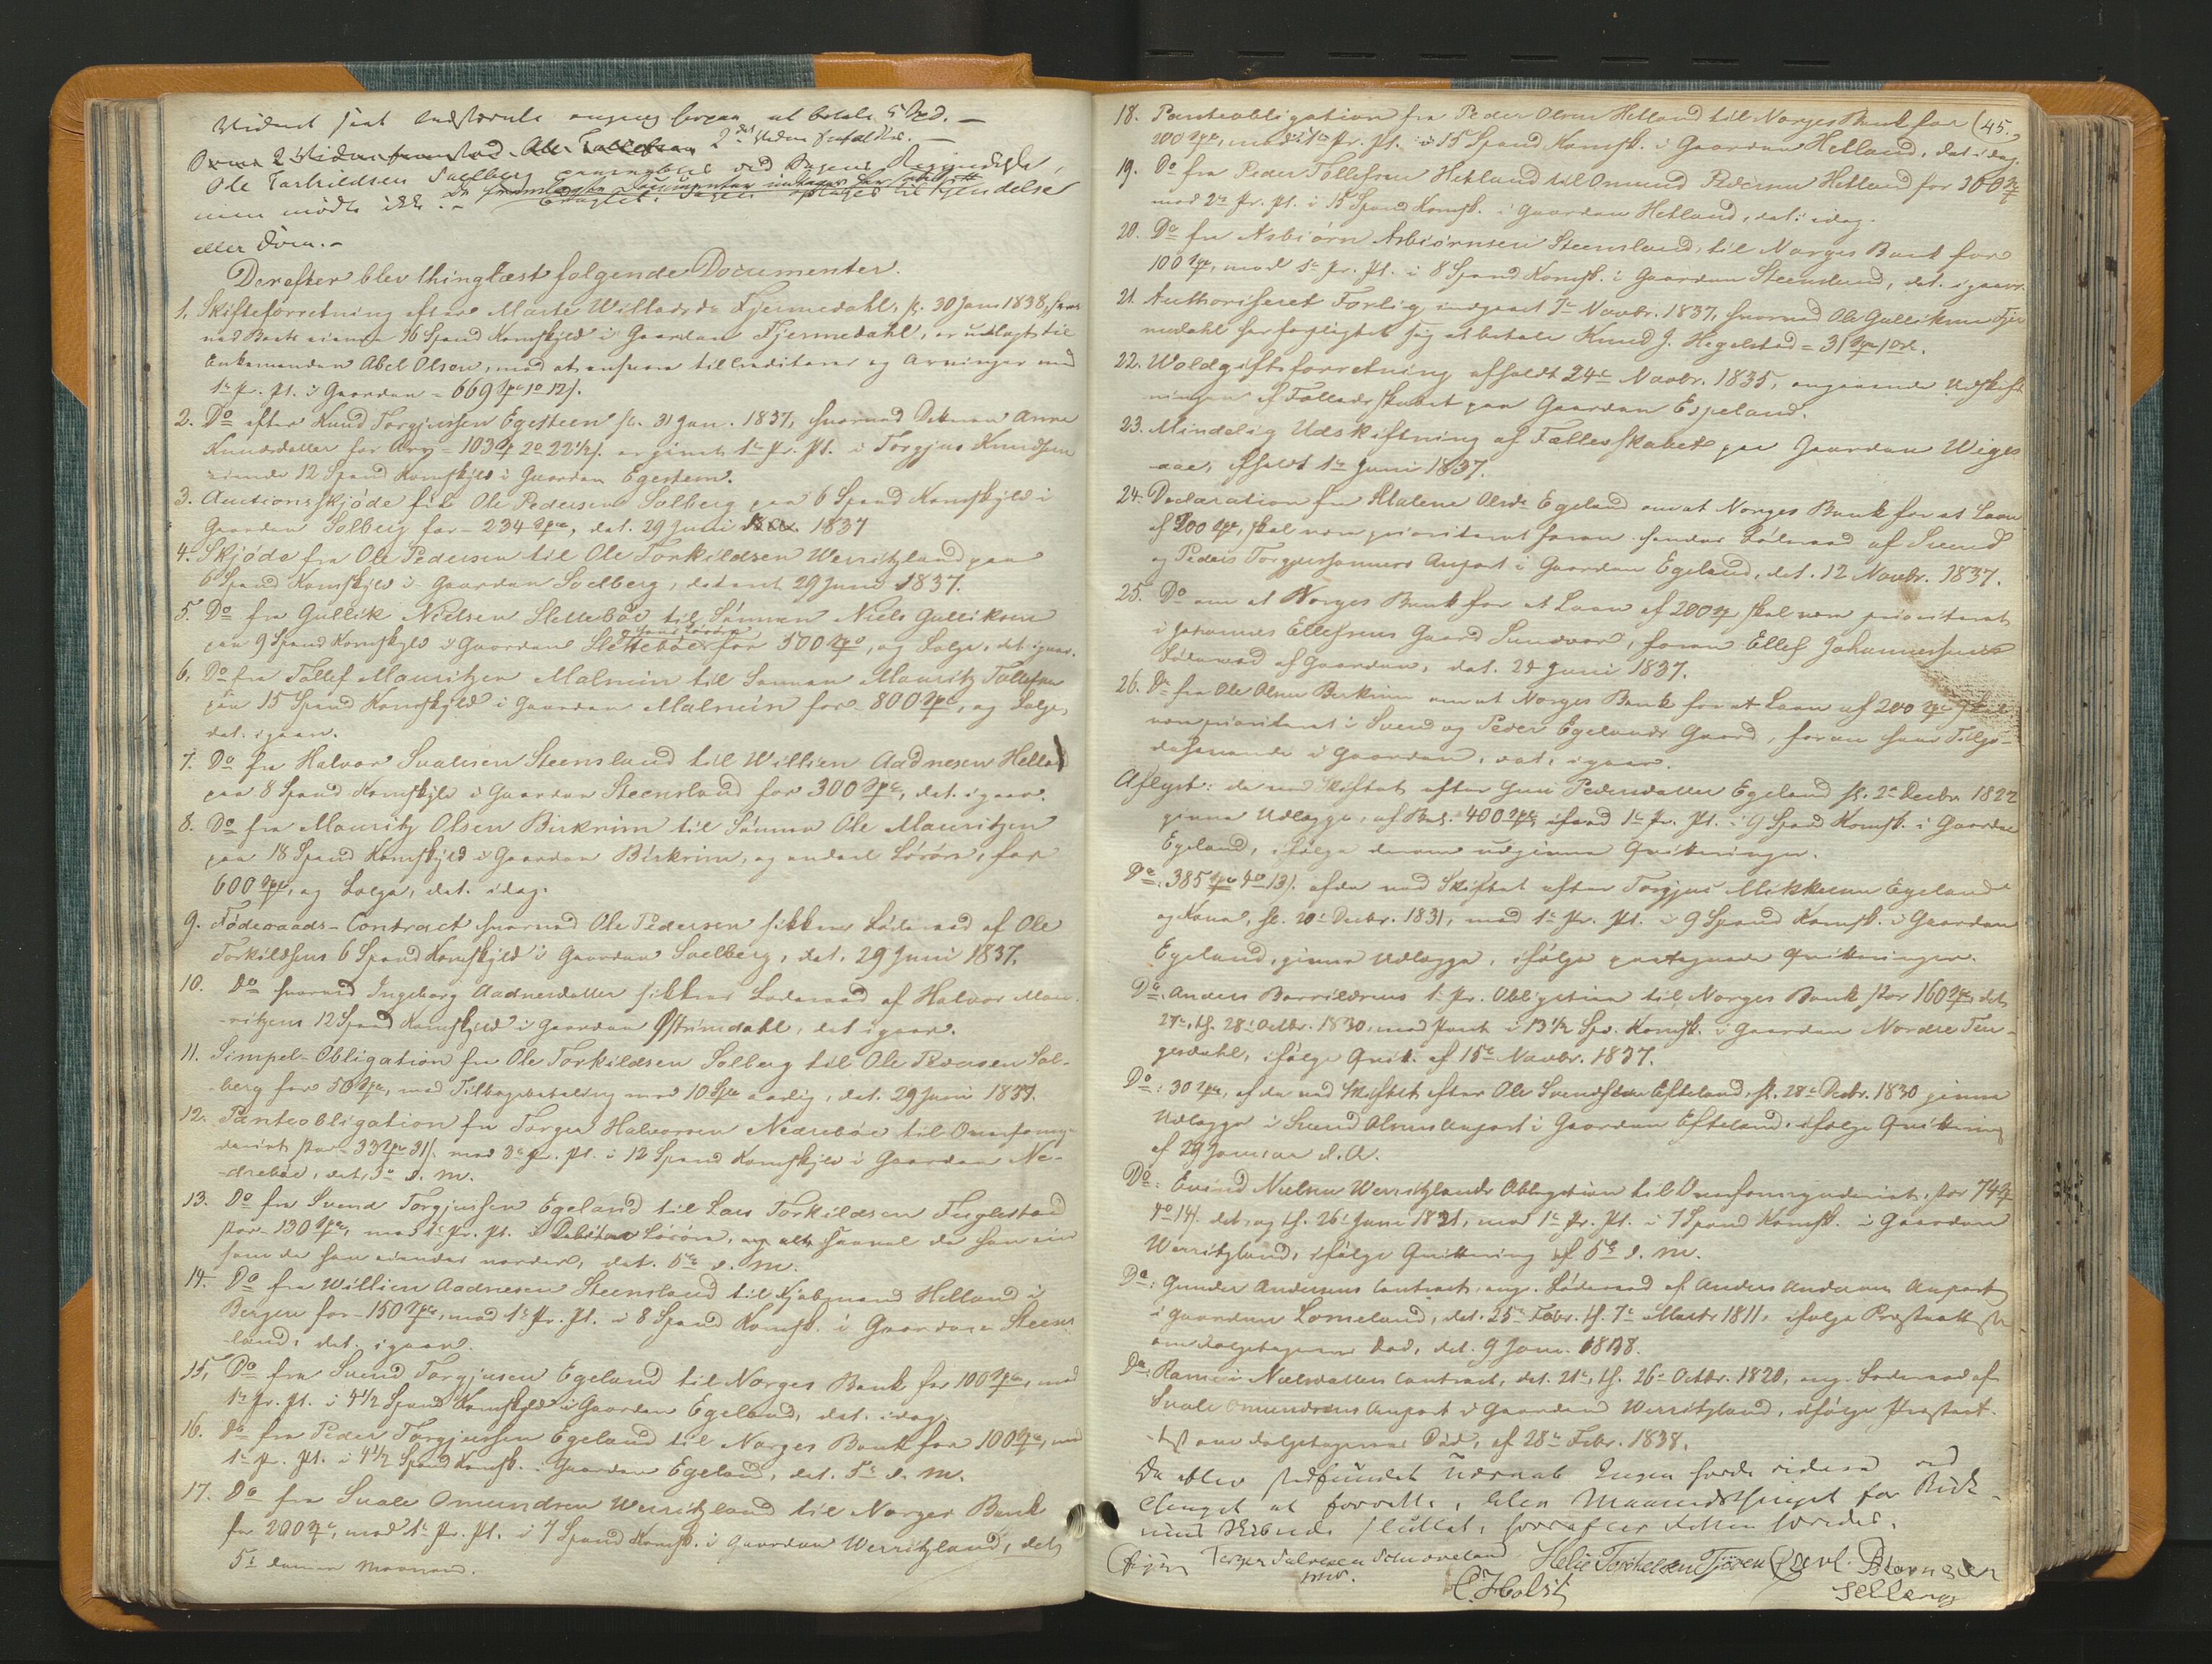 at betale 5 Spd. –
2det Vidne
Ole Torkildsen Soelberg paaraabtes ved
men mødte ikke. – Sagen optages til Kjendelse
eller Dom. –
Derefter blev thinglæst følgende Documenter.
1. Skifteforretning efter Marte Willadsdr Fjermedahl, sl. 30 Jan 1838, hvor-
ved Boets eiende 36 Spand Kornskyld i Gaarden Fjermedahl, er udlagt til
Enkemanden Abel Olsen, mod at ansvare til Creditorer og Arvinger med
1te Pr. Pt. i Gaarden = 669 Spd 1 o 12 s.
2. Do efter Knud Torgjussen Egesteen sl. 31 Jan. 1837, hvorved Datteren Anne
Knudsdatter for Arv = 103 Spd 2 o 22½ s. er givet 1te Pr. Pt. i Torgjus Knudsens
eiende 12 Spand Kornskyld i Gaarden Egesteen.
3. Auctionsskjøde fra Ole Pedersen Solberg paa 6 Spand Kornskyld i
Gaarden Solberg for 234 Spd, dat. 29 Juni 1837
4. Skjøde fra Ole Pedersen til Ole Torkildsen Werritzland paa
6 Spand Kornskyld i Gaarden Soelberg, dateret 29 Juni 1837.
5. Do fra Gullik Nielsen Slettebøe til Sønnen Niels Gulliksen
paa 9 Spand Kornskyld i Gaarden Slettebøe for 500 Spd, og Løsøre, dat. igaar.
6. Do fra Tollef Mauritzen Malmein til Sønnen Mauritz Tollefsen
paa 15 Spand Kornskyld i Gaarden Malmein for 800 Spd, og
dat. igaar.
7. Do fra Halvor Svalesen Steensland til Willien Aadnesen Helland
paa 8 Spand Kornskyld i Gaarden Steensland for 300 Spd, dat. igaar.
8. Do fra Mauritz Olsen Birkrim til Sønnen Ole Mauritzen
paa 18 Spand Kornskyld i Gaarden Birkrim, og endeel Løsøre, for
600 Spd, og dat. idag.
9. Føderaads-Contract hvorved Ole Pedersen sikkres Føderaad af Ole
Torkildsens 6 Spand Kornskyld i Gaarden Soelberg, dat. 29 Juni 1837.
10. Do hvorved Ingeborg Aadnesdatter sikkres Føderaad af Halvor Mau-
ritzens 12 Spand Kornskyld i Gaarden Østrimdahl, dat igaar.
11. Simpel-Obligation fra Ole Torkildsen Solberg til Ole Pedersen Sol-
berg for 50 Spd, med Tilbagebetaling med 10 Spd aarlig, dat. 29 Juni 1837.
12. Panteobligation fra Torger Halvorsen Nedrebøe til Overformyn-
deriet stor 33 Spd 31 s. med 3te Pr. Pt. i 12 Spand Kornskyld i Gaarden Ne-
drebøe, dat. 3de d. M.
13. Do fra Svend Torgjussen Egeland til Lars Torkildsen Fuglestad
stor 130 Spd, med 1te Pr. Pt. i Debitors Løsøre, og alt saavel det han eier
som det han eiendes vorder, dat. 6te d. M.
14. Do fra Willien Aadnesen Steensland til Kjøbmand Helland i
Bergen for 150 Spd, mod 1te Pr. Pt. i 8 Spand Kornsk. i Gaarden Steens-
land, dat. igaar.
15. Do fra Svend Torgjusen Egeland til Norges Bank for 100 Spd, med
1te Pr. Pt. i 4½ Spand Kornskyld i Gaarden Egeland, dat. idag.
16. Do fra Peder Torgjussen Egeland til Norges Bank for 100 Spd, med
1te Pr. Pt. i 4½ Spand Kornsk. i Gaarden Egeland, dat. 5te d. M.
17. Do fra Svale Omundsen Werritzland til Norges Bank
for 200 Spd, mod 1te Pr. Pt. i 7 Spand Kornsk. i Gaarden Werritzland, dat.
5te denne Maaned.
45.
18. Panteobligation fra Peder Olsen Hetland til Norges Bank for
200 Spd, mod 1te Pr. Pt. i 15 Spand Kornsk. i Gaarden Hetland, dat. idag.
19. Do fra Peder Tollefsen Hetland til Omund Pedersen Hetland for 300 Spd
mod 2den Pr. Pt. i 15 Spand Kornsk. i Gaarden Hetland, dat. idag.
20. Do fra Asbiørn Asbiørnsen Steensland, til Norges Bank for
100 Spd, mod 1te Pr. Pt. i 8 Spand Kornsk. i Gaarden Steensland, dat. igaar.
21. Authoriseret Forlig indgaaet 7de Novbr. 1837, hvorved Ole Gulliksen Fjer-
medahl har forpligtet sig at betale Knud J. Hegelstad = 31 Spd 1 ort.
22. Woldgiftsforretning afholdt 24de Novbr. 1835, angaaende Udskift-
ningen af Fælledsskabet paa Gaarden Espeland.
23. Mindelig Udskiftning af Fællesskabet paa Gaarden Wiges-
aae, afholdt 1te Juni 1837.
24. Declaration fra Malene Olsdr Egeland om at Norges Bank for et Laan
af 200 Spd, skal være prioriteret foran hendes Føderaad af Svend
og Peders Torgjussønners Anpart i Gaarden Egeland, dat. 12 Novbr. 1837.
25. Do om at Norges Bank for et Laan af 200 Spd skal være prioriteret
i Johannes Ellefsens Gaard Sundvor, foran Ellef Johannessens
Føderaad af Gaarden, dat. 28 Juni 1837.
26. Do fra Ole Olsen Birkrim om at Norges Bank for et Laan af 200 Spd skal
være prioriteret i Svend og Peder Egelands Gaard, foran hans Tilgo-
dehavende i Gaarden, dat. igaar.
Aflyst: de ved Skiftet efter Guri Pedersdatter Egeland sl. 2de Decbr. 1822
givne Udlægge, af 400 Spd, imod 1te Pr. Pt. i 9 Spand Kornsk. i Gaarden
Egeland, ifølge derom udgivne Qvitteringer.
Do: 385 Spd 4 o 13 s. af de ved Skiftet efter Torgjus Mikkelsen Egeland
og Kone, sl. 20de Decbr. 1831, mod 1te Pr. Pt. i 9 Spand Kornsk. i Gaarden
Egeland, givne Udlægge, ifølge paategnede Qvitteringer.
Do: Anders Bærrildsens 1te Pr. Obligation til Norges Bank stor 160 Spd, dat.
27de, tl. 28de Octbr. 1830, mod Pant i 13½ Spd. Kornsk. i Gaarden Nordre Ten-
gesdahl, ifølge Qvit. af 15de Novbr. 1837.
Do: 30 Spd, af de ved Skiftet efter Ole Svendsen Efteland, sl. 28de Decbr. 1830 givne
Udlægge i Svend Olsens Anpart i Gaarden Efteland, ifølge Qvittering
af 29 Januar d. A.
Do: Eivind Nielsen Werritzlands Obligation til Overformynderiet, stor 74 Spd
4 o 14 s. dat. og tl. 26de Juni 1821, mod 1te Pr. Pt. i 7 Spand Kornsk. i Gaarden
Werritzland, ifølge Qvittering af 5te d. M.
Do: Gunder Andersens Contract, ang. Føderaad af Anders Andersens Anpart
i Gaarden Lomeland, dat. 25de Febr. tl. 7de Marts 1811, ifølge Præsteattest
om Folgetagernes Død, dat. 9 Jan. 1838.
Do: Rannei Nielsdatters Contract, dat. 21de, tl. 26de Octbr. 1820, ang. Føderaad af
Svale Omundsens Anpart i Gaarden Werritzland, ifølge Præsteat-
test om Folgetagernes Død, af 28de Febr. 1838.
Da efter stedfundet Udraab Ingen havde videre ved
Thinget at forrette, blev Maanedsthinget for
sluttet, hvorefter Retten hævedes.
Torger Salvesen Schioveland Helie Torkelsen Tiøren
C. Holst